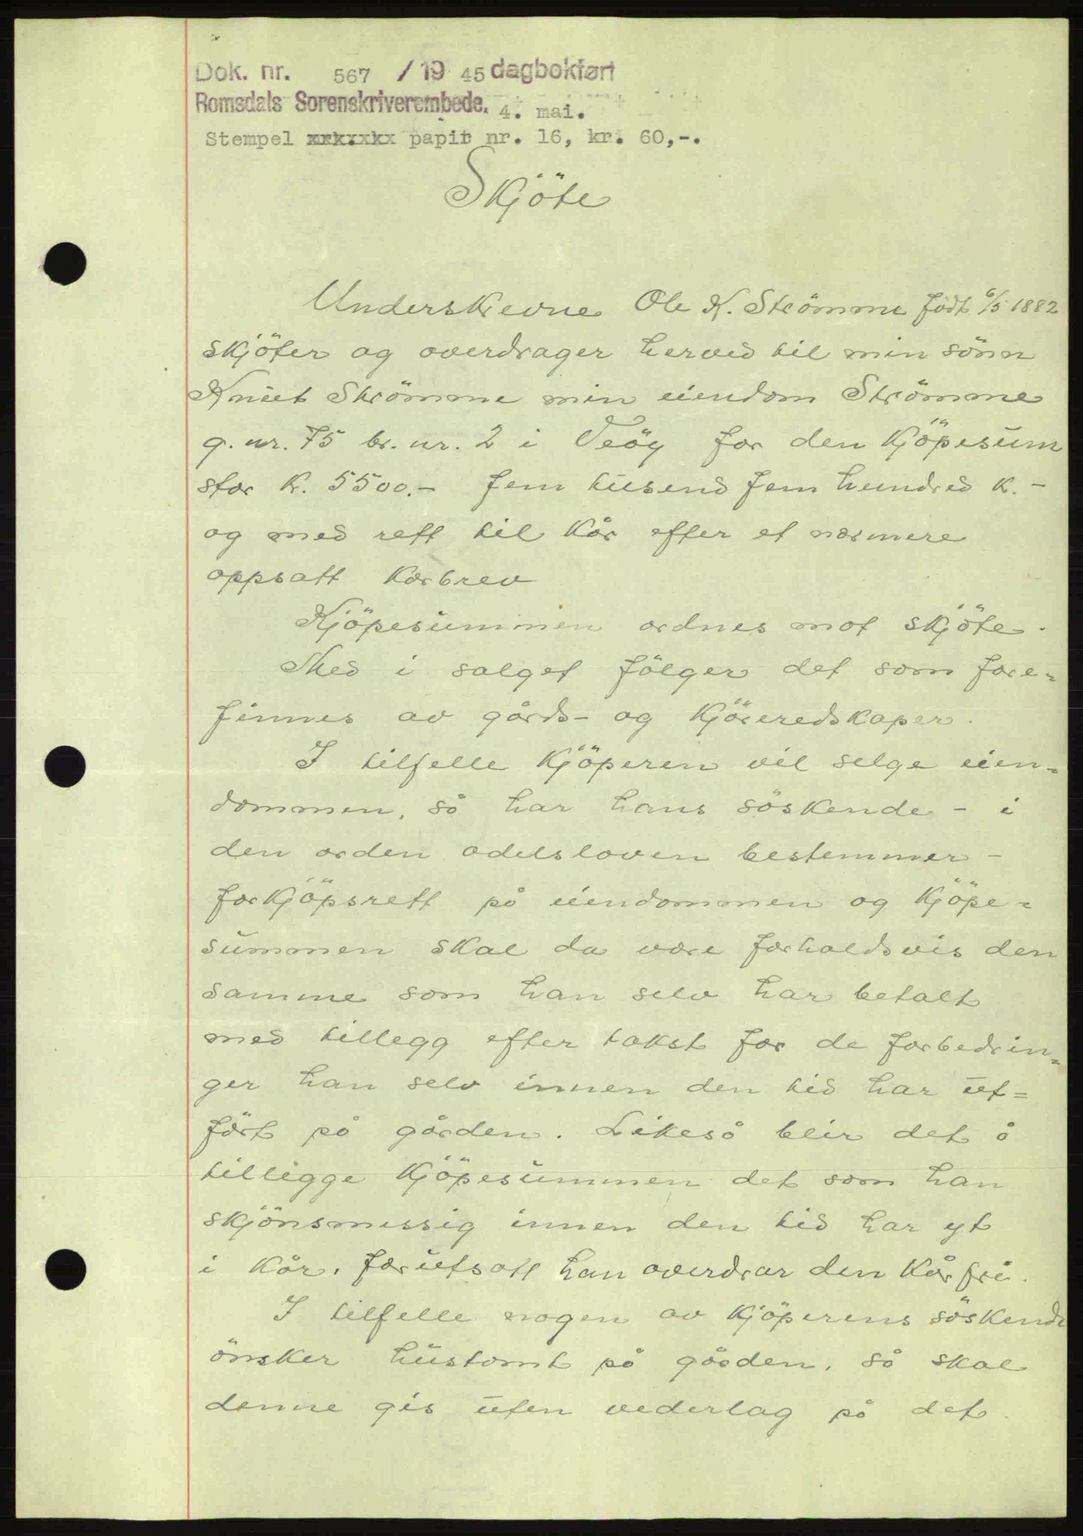 Dok. nr. 567 / 19 45 dagbokført
Romsdals Sorenskriverembede. 4. mai.
Stempel papir nr. 16, kr. 60,-.
Skjöte
Underskrevne Ole K. Strömme født 6/5 1882
skjöter og overdrager herved til min sönn
Knut Strömme min eiendom Strömme
g. nr. 75 br. nr. 2 i Veöy for den kjöpesum
stor k. 5500.- fem tusend fem hundred k.-
og med rett til kår efter et nærmere
oppsatt kårbrev
Kjöpesummen ordnes mot skjöte.
Med i salget fölger det som fore=
finnes av gårds- og kjöreredskaper.
I tilfelle kjöperen vil selge eien=
dommen, så har hans söskende - i
den orden odelsloven bestemmer -
forkjöpsrett på eiendommen og kjöpe=
summen skal da være forholdsvis den
samme som han selv har betalt
med tillegg efter takst for de forbedrin=
ger han selv innen den tid har ut=
fört på gården. Likeså blir det å
tillegge kjöpesummen det som han
skjönsmessig innen den tid har yt
i kår, forutsatt han overdrar den kårfri.
I tilfelle nogen av kjöperens söskende
önsker hustomt på gården, så skal
denne gis uten vederlag på det